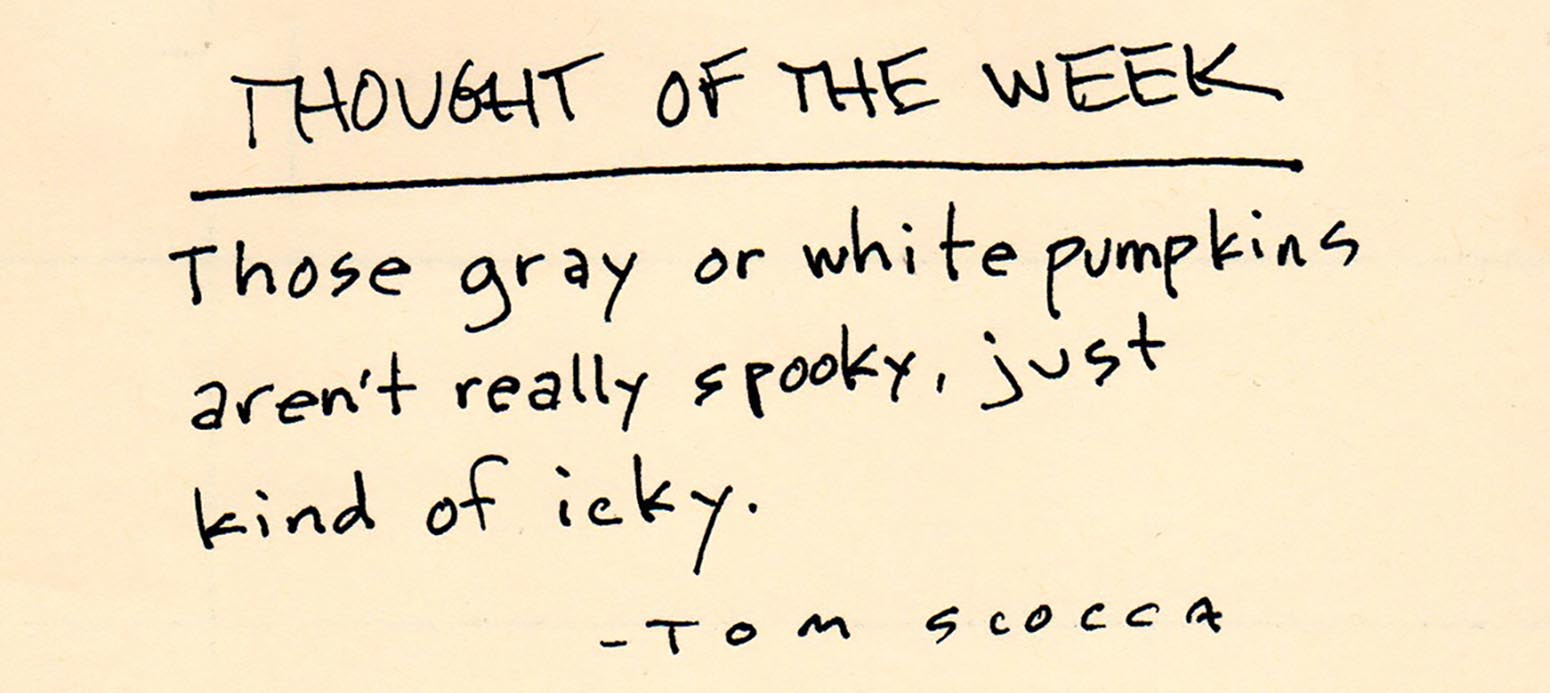 THOUGHT OF THE WEEK
Those gray or white pumpkins
aren't really spooky, just
kind of icky.
-TOM SCOCCA